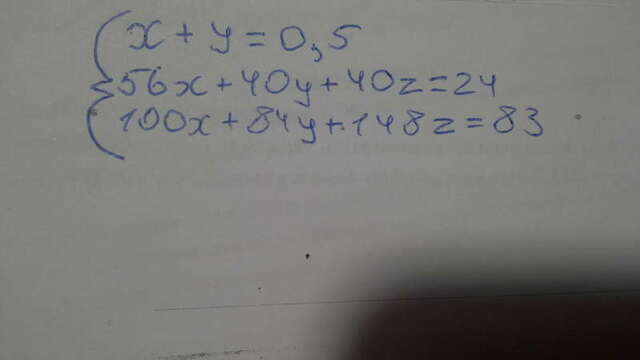 x + y = 0,5
56x + 40y + 40z = 24
100x + 84y + 148z = 83